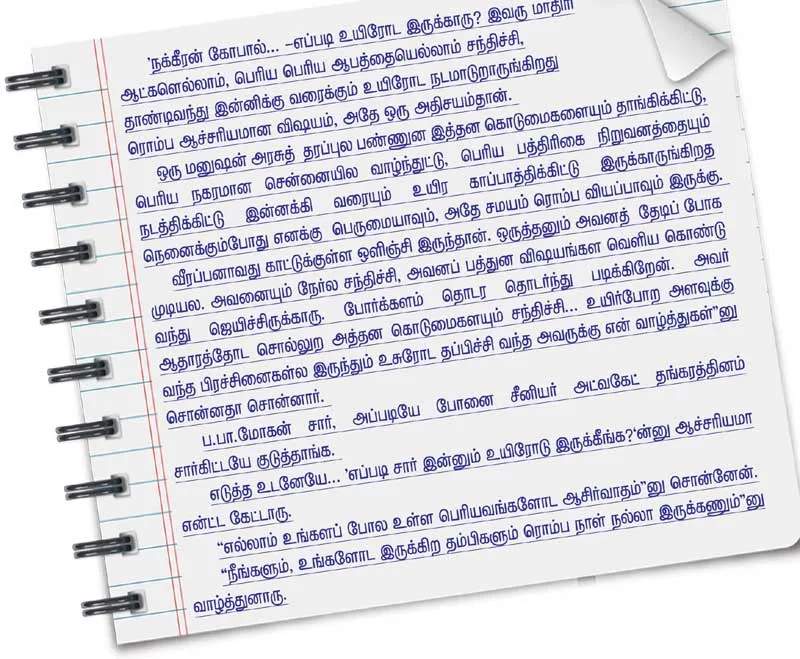 'நக்கீரன் கோபால்... –எப்படி உயிரோட இருக்காரு? இவரு மாதிரி
ஆட்களெல்லாம், பெரிய பெரிய ஆபத்தையெல்லாம் சந்திச்சி,
தாண்டிவந்து இன்னிக்கு வரைக்கும் உயிரோட நடமாடுறாருங்கிறது
ரொம்ப ஆச்சரியமான விஷயம், அதே ஒரு அதிசயம்தான்.
ஒரு மனுஷன் அரசுத் தரப்புல பண்ணுன இத்தன கொடுமைகளையும் தாங்கிக்கிட்டு,
பெரிய நகரமான சென்னையில வாழ்ந்துட்டு, பெரிய பத்திரிகை நிறுவனத்தையும்
நடத்திக்கிட்டு இன்னக்கி வரையும் உயிர காப்பாத்திக்கிட்டு இருக்காருங்கிறத
நெனைக்கும்போது எனக்கு பெருமையாவும், அதே சமயம் ரொம்ப வியப்பாவும் இருக்கு.
வீரப்பனாவது காட்டுக்குள்ள ஒளிஞ்சி இருந்தான். ஒருத்தனும் அவனத் தேடிப் போக
முடியல. அவனையும் நேர்ல சந்திச்சி, அவனப் பத்துன விஷயங்கள வெளிய கொண்டு
வந்து ஜெயிச்சிருக்காரு. போர்க்களம் தொடர தொடர்ந்து படிக்கிறேன். அவர்
ஆதாரத்தோட சொல்லுற அத்தன கொடுமைகளயும் சந்திச்சி... உயிர்போற அளவுக்கு
வந்த பிரச்சினைகள்ல இருந்தும் உசுரோட தப்பிச்சி வந்த அவருக்கு என் வாழ்த்துகள்”னு
சொன்னதா சொன்னார்.
ப.பா.மோகன் சார், அப்படியே போனை சீனியர் அட்வகேட் தங்கரத்தினம்
சார்கிட்டயே குடுத்தாங்க.
எடுத்த உடனேயே... 'எப்படி சார் இன்னும் உயிரோடு இருக்கீங்க?'ன்னு ஆச்சரியமா
என்ட்ட கேட்டாரு.
“எல்லாம் உங்களப் போல உள்ள பெரியவங்களோட ஆசிர்வாதம்”னு சொன்னேன்.
“நீங்களும், உங்களோட இருக்கிற தம்பிகளும் ரொம்ப நாள் நல்லா இருக்கணும்”னு
வாழ்த்துனாரு.